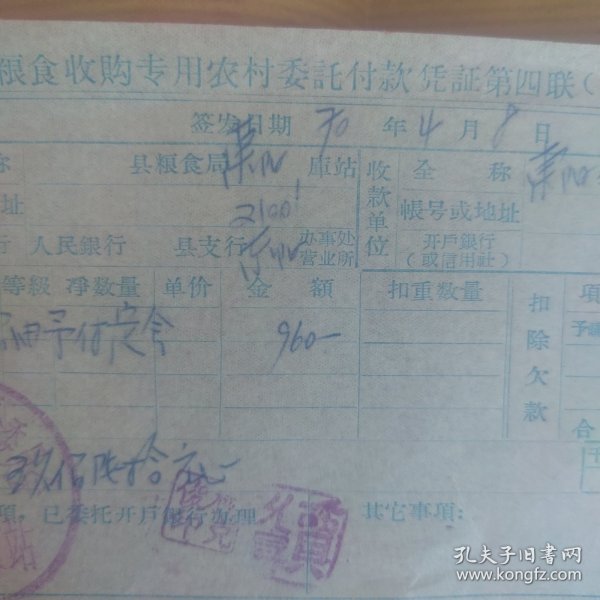 粮食收购专用农村委託付款凭証第四联(
签发日期 70 年 4 月 8 日
称 县粮食局 庫站 收款单位 全 称
址 2100 帳号或地址
行 人民銀行 县支行 办事处 营业所 开戶銀行 (或信用社)
等級 净数量 单价 金 額 扣重数量 扣除欠款 項
予付定金 960— 予
合
玖佰陆拾元
項,已委托开戶銀行办理 其它事項:
站
孔夫子旧书网
www.kongfz.com